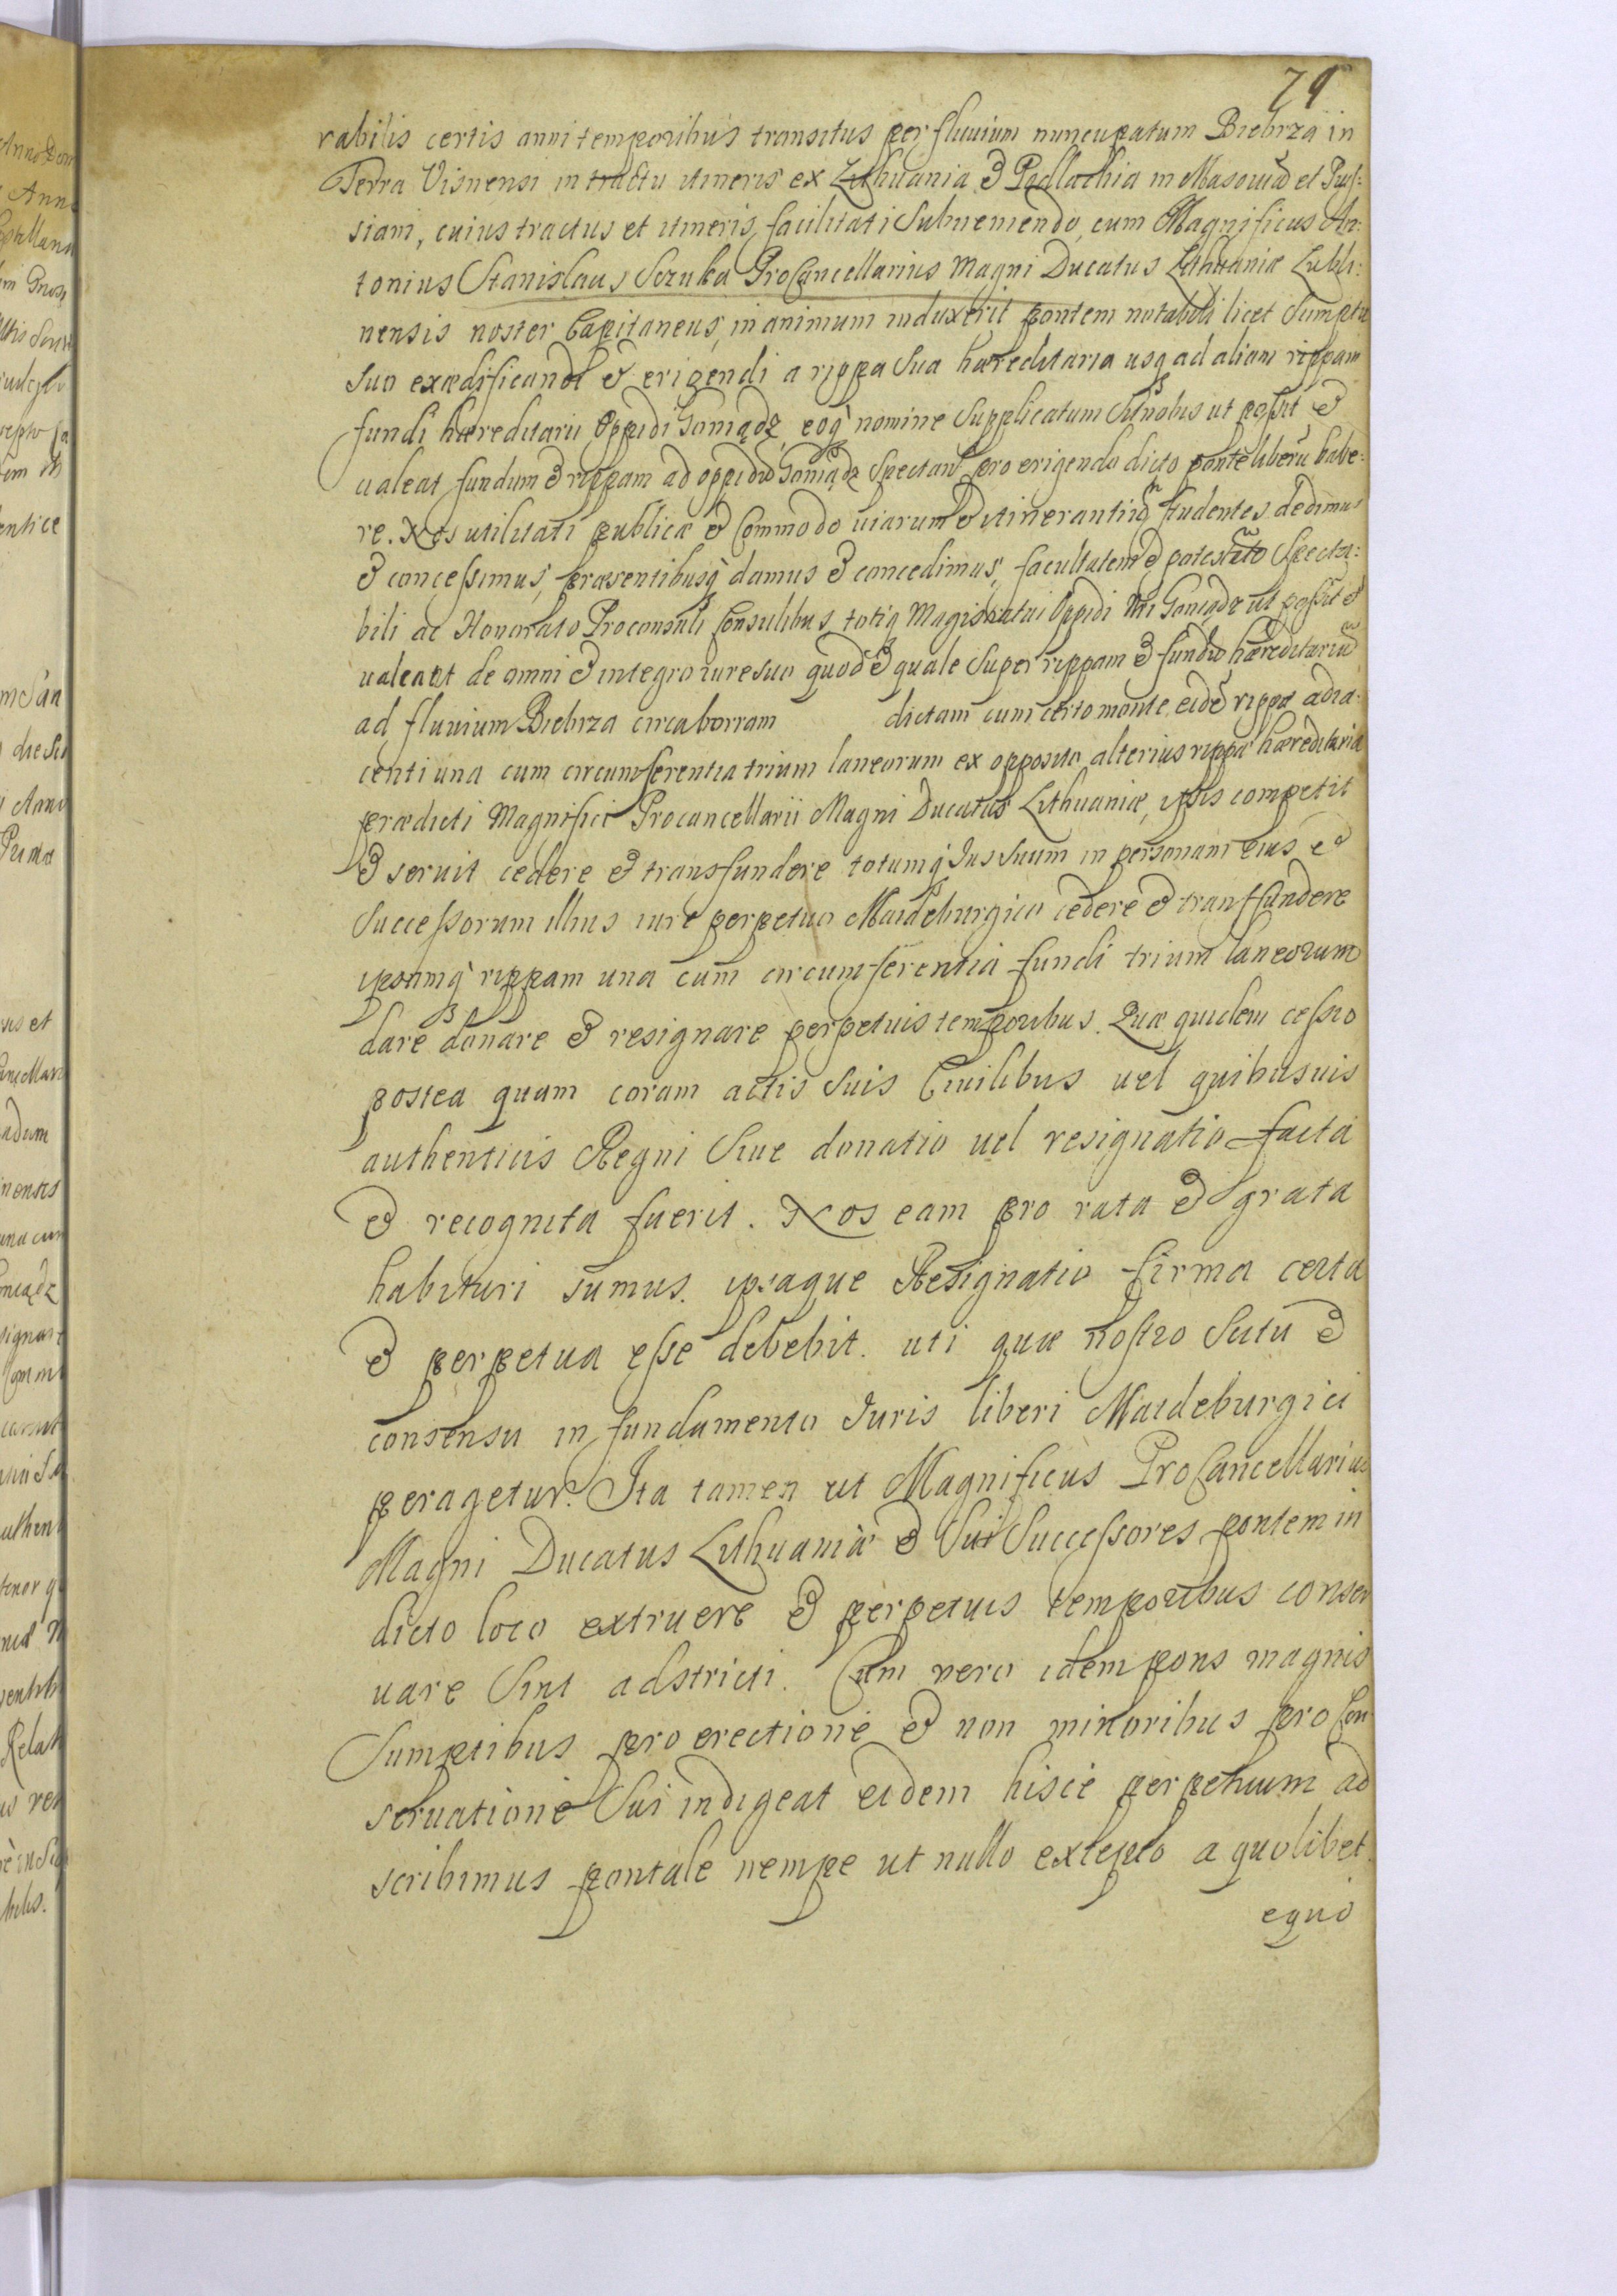 79
rabilis certis anni temporibus transitus per fluuium nuncupatum Biebrza in
Terra Visnensi in tractu itineris ex Lithuania & Podlachia in Masouiã et Prus:
siam, cuius tractus et itineris facilitati Subueniendo, cum Magnificus An:
tonius Stanislaus Sczuka ProCancellarius Magni Ducatus Lithuaniæ Lubli:
nensis noster Capitaneus, in animum induxerit pontem notabili licet Sumptu
Suo exædificandi & erigendi a rippa Sua hæreditaria usq ad aliam rippam
fundi hæreditarii Oppidi Goniądz, eoq nomine Supplicatum Sit nobis ut possit &
ualeat fundum & rippam ad oppidũ Goniądz Spectan pro erigendo dicto ponte liberũ habe:
re. Nos utilitati publicæ & Commodo uiarum & itinerantiũ studentes dedimus
& concessimus, præsentibusq damus & concedimus, facultatem & potestatẽ Specta:
bili ac Honorato Proconsuli Consulibus totiq Magistratui Oppidi Nri Goniądz ut possit &
ualeant de omni & integro iure suo quod & quale Super rippam & fundũ hæreditariũ
ad fluuium Biebrza circa borram dictam cum certo monte eidẽ rippæ adia:
centi una cum circumferentia trium laneorum ex opposito alterius rippæ hæreditariæ
prædicti Magnifici Procancellarii Magni Ducatus Lithuaniæ, ipsis competit
& seruit cedere & transfundere totumq Jus Suum in personam eius &
Successorum illius iure perpetuo Maideburgico cedere & transfundere
ipsamq rippam una cum circumferentia fundi trium laneorum
dare donare & resignare perpetuis temporibus. Quæ quidem cessio
postea quam coram actis Suis Ciuilibus uel quibusuis
authenticis Regni Siue donatio uel resignatio facta
& recognita fuerit. Nos eam pro rata & grata
habituri sumus. ipsaque Resignatio firma certa
& perpetua esse debebit. uti quæ nostro Scitu &
consensu in fundamento Juris liberi Maideburgici
peragetur. Ita tamen ut Magnificus ProCancellarius
Magni Ducatus Lithuaniæ & Sui Successores pontem in
dicto loco extruere & perpetuis temporibus conser
uare Sint adstricti. Cum vero idem pons magnis
Sumptibus pro erectione & non minoribus pro Con
seruatione Sui indigeat eidem hisce perpetuum ad
scribimus pontale nempe ut nullo excepto a quolibet
equo